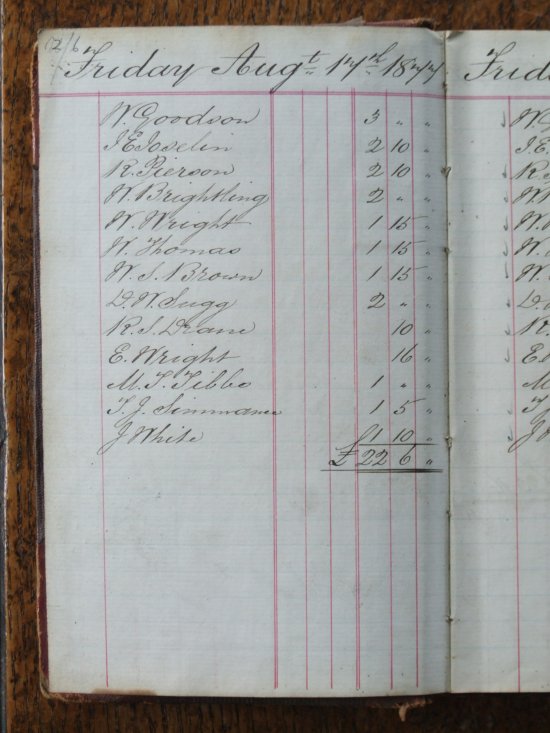 2/6
Friday Augt 17th 1877
W. Goodson 3 " "
J E Joselin 2 10 "
R. Pierson 2 10 "
W. Brightling 2 " "
W. Wright 1 15 "
W. Thomas 1 15 "
W. S. Brown 1 15 "
D. W. Sugg 2 " "
R. S. Drane 10 "
E. Wright 16 "
M. T. Tibbs 1 " "
T. J. Simmance 1 5 "
J White 1 10 "
£ 22 6 "
Frid